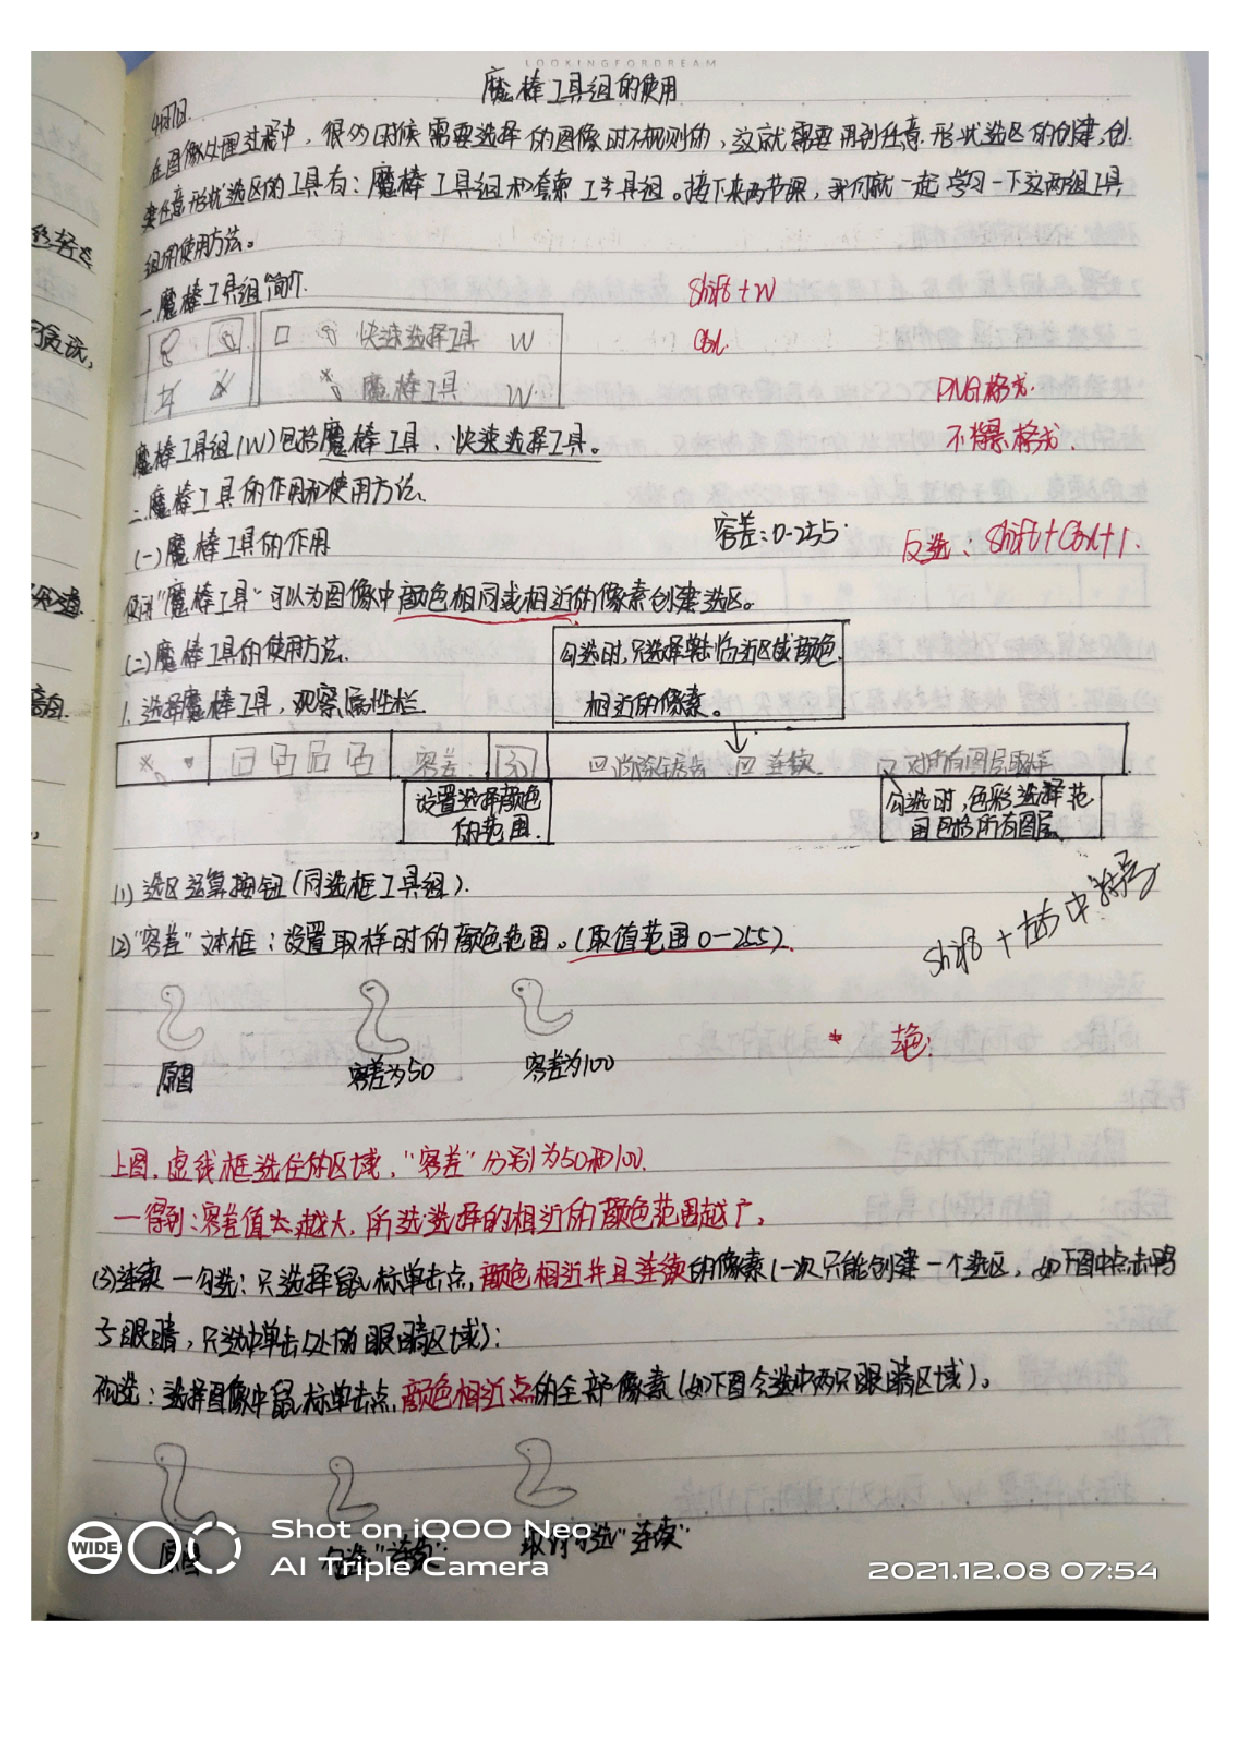 LOOKINGFORDREAM
魔棒工具组的使用
4月7日
在图像处理过程中，很多时候需要选择的图像时不规则的，这就需要用到任意形状选区的创建，创
建任意形状选区的工具有：魔棒工具组和套索工具组。接下来两节课，我们就一起学习一下这两组工具
组的使用方法。
一.魔棒工具组简介.
Shift+W
快速选择工具 W
Ctrl.
魔棒工具 W
PNG格式.
魔棒工具组(W)包括魔棒工具、快速选择工具。
二.魔棒工具的作用和使用方法.
容差:0-255.
(一)魔棒工具的作用
反选：Shift+Ctrl+I.
使用"魔棒工具"可以为图像中颜色相同或相近的像素创建选区。
(二)魔棒工具的使用方法.
勾选时,只选择单击临近区域颜色
相近的像素。
1.选择魔棒工具，观察属性栏
容差: 消除锯齿 连续 对所有图层取样
设置选择颜色
的范围.
勾选时,色彩选择范
围包括所有图层
(1)选区运算按钮(同选框工具组).
(2)"容差"文本框：设置取样时的颜色范围。(取值范围0-255).
原图
容差为50
容差为100
上图,虚线框选住的区域,"容差"分别为50和100.
一得到:容差值越大,所选选择的相近的颜色范围越广。
(3)连续 一勾选：只选择鼠标单击点,颜色相近并且连续的像素(一次只能创建一个选区，如下图中点击鸭
子眼睛，只选中单击处的眼睛区域)：
选择图像中鼠标单击点,颜色相近点的全部像素(如下图会选中两只眼睛区域)。
原图
勾选"连续"
取消勾选"连续"
WIDE
Shot on iQOO Neo
AI Triple Camera
2021.12.08 07:54